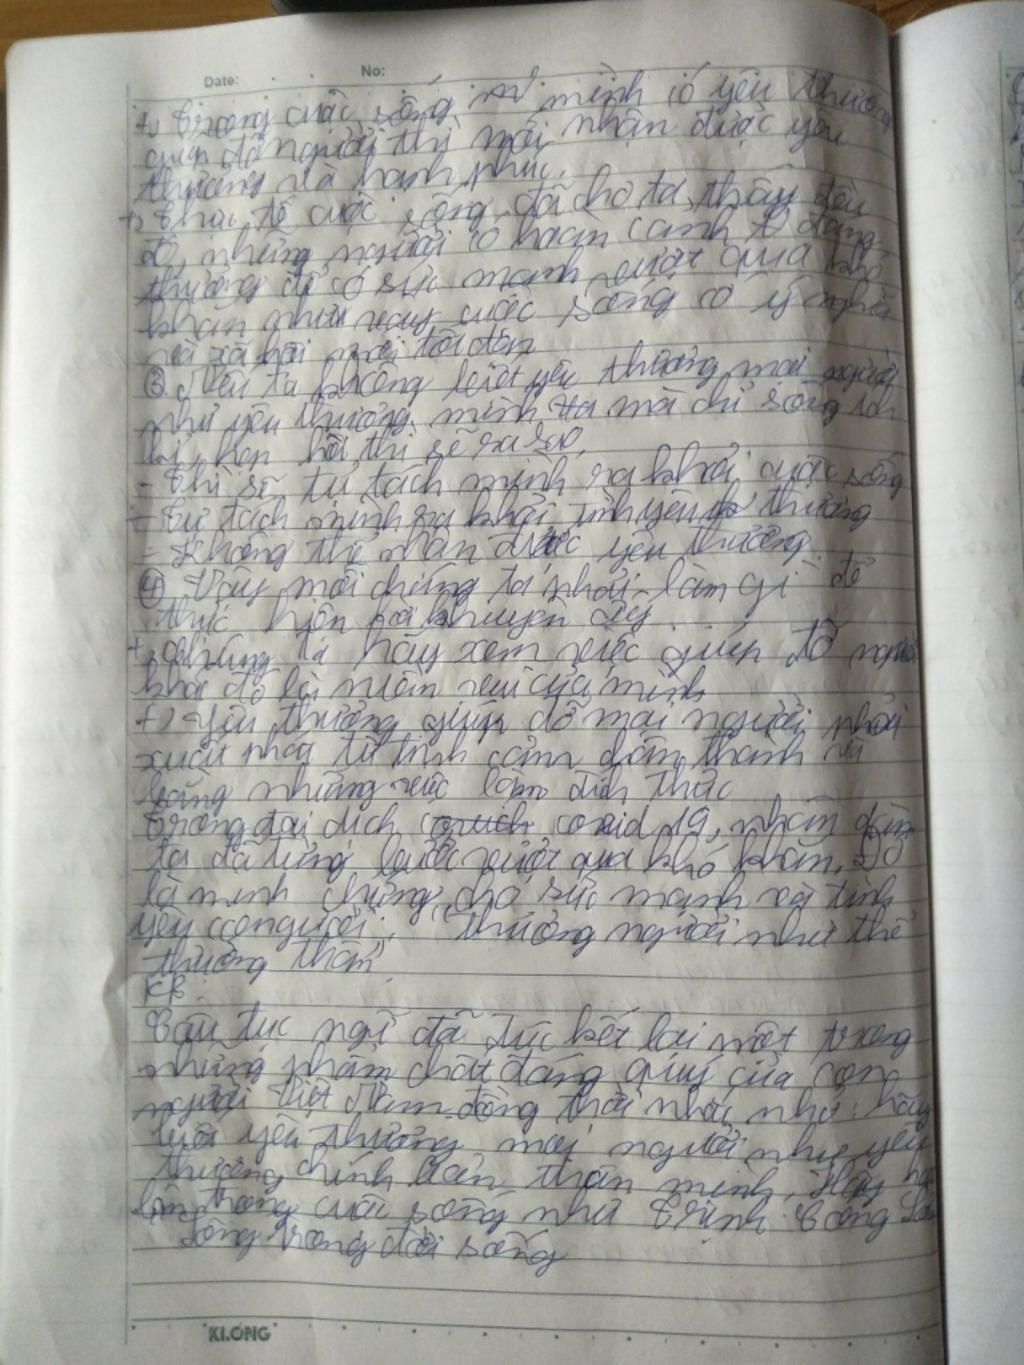 Date: No:
+) Trong cuộc sống mình có yêu thương
giúp đỡ người thì mới nhận được yêu
thương và hạnh phúc.
+) Thực tế cuộc sống đã cho ta thấy điều
đó, những người có hoàn cảnh đáng
thương để có sức mạnh vượt qua khó
khăn như vậy cuộc sống có ý nghĩa
và xã hội mới tốt đẹp
③ Nếu ta không biết yêu thương mọi người
như yêu thương mình ta mà chỉ sống ích
kỉ, hẹp hòi thì sẽ ra sao,
- Thì sẽ tự tách mình ra khỏi cuộc sống
- Tự tách mình ra khỏi tình yêu thương
- Không thể nhận được yêu thương.
④ Vậy mỗi chúng ta phải làm gì để
thực hiện lời khuyên ấy
+, Chúng ta hãy xem việc giúp đỡ người
khác đó là niềm vui của mình
+) Yêu thương giúp đỡ mọi người phải
xuất phát từ tình cảm chân thành và
bằng những việc làm đích thực
Trong đại dịch covid 19, nhân dân
ta đã từng bước vượt qua khó khăn. Đó
là minh chứng cho sức mạnh và tình
yêu con người, "thương người như thể
thương thân"
KB:
Câu tục ngữ đã đúc kết lại một trong
những phẩm chất đáng quý của con
người Việt Nam đồng thời nhắc nhở hãy
biết yêu thương mọi người như yêu
thương chính bản thân mình. Hãy
sống trong cuộc sống như Trịnh Công Sơn
Sống trong đời sống
KLONG